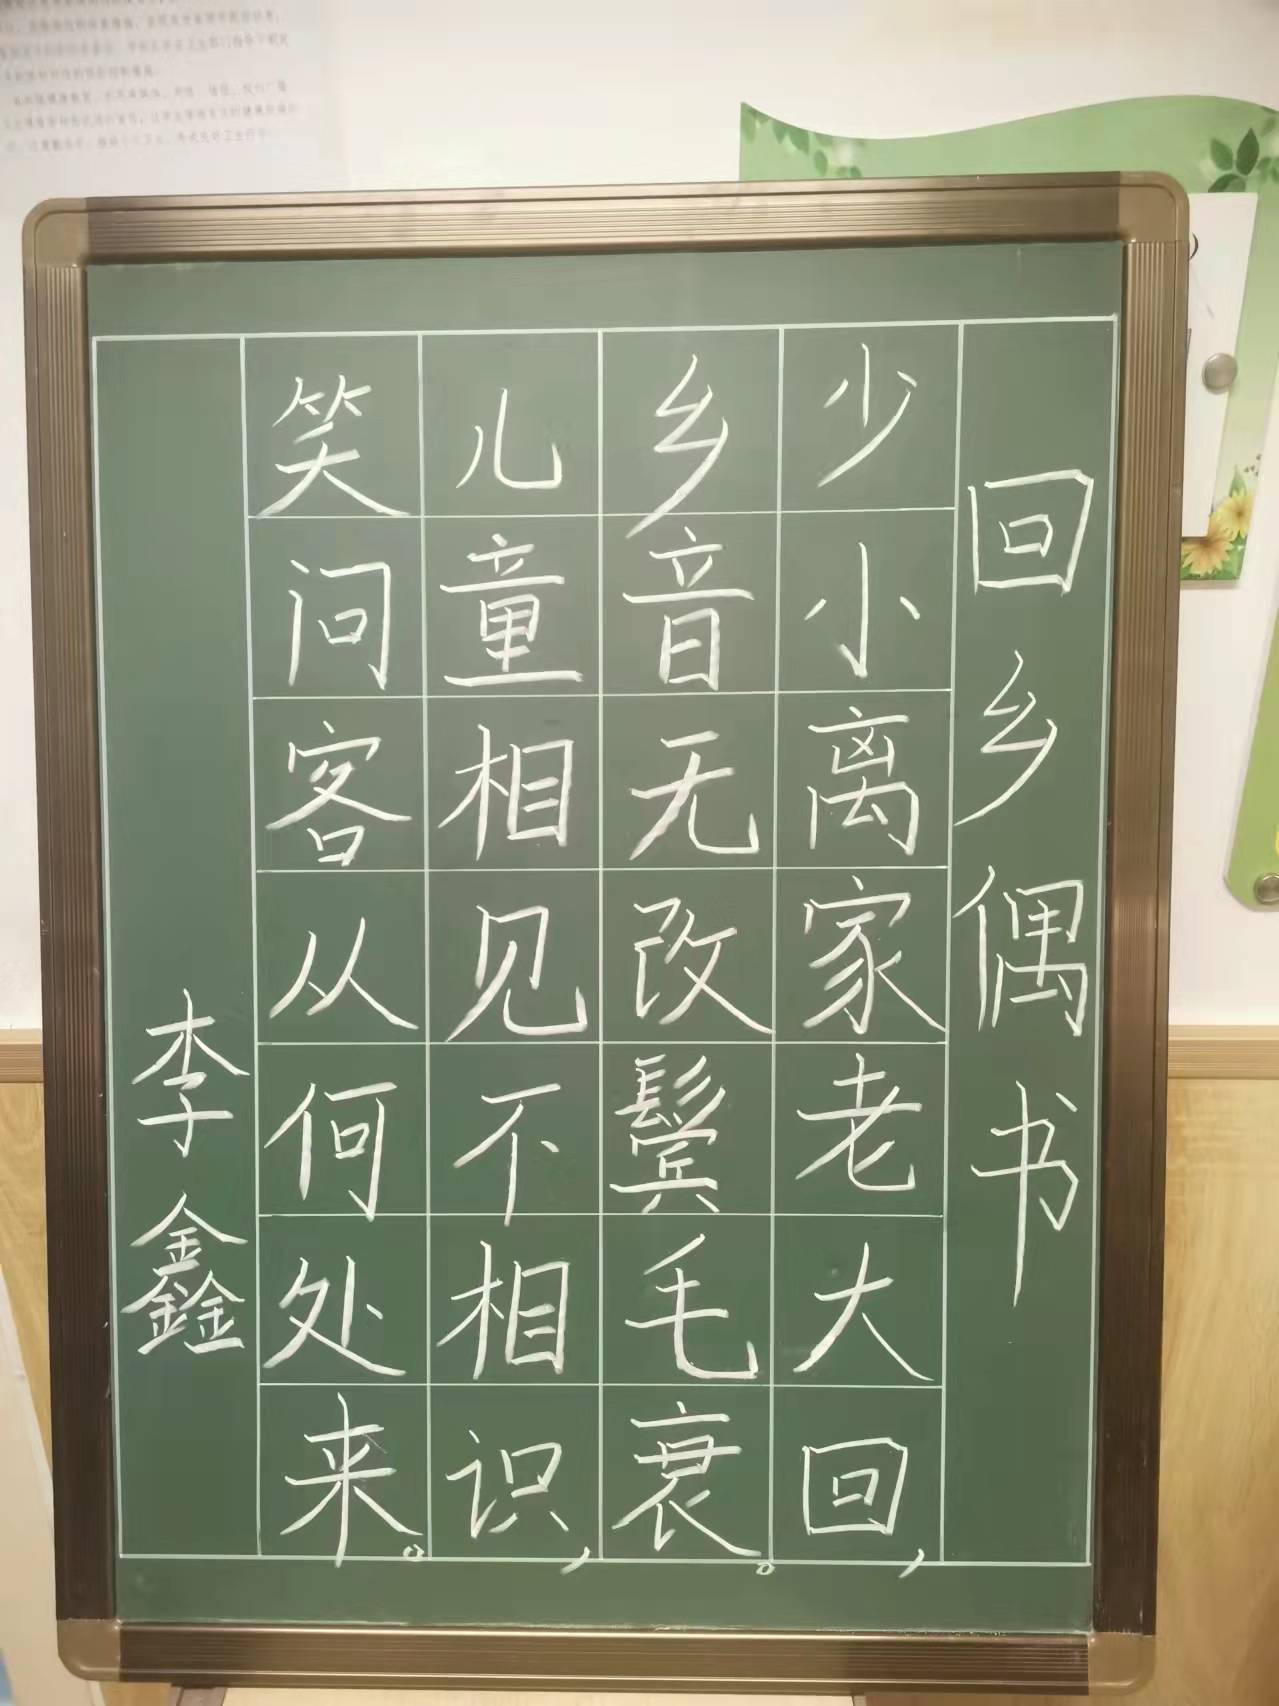 回乡偶书
少小离家老大回，
乡音无改鬓毛衰。
儿童相见不相识，
笑问客从何处来。
李鑫